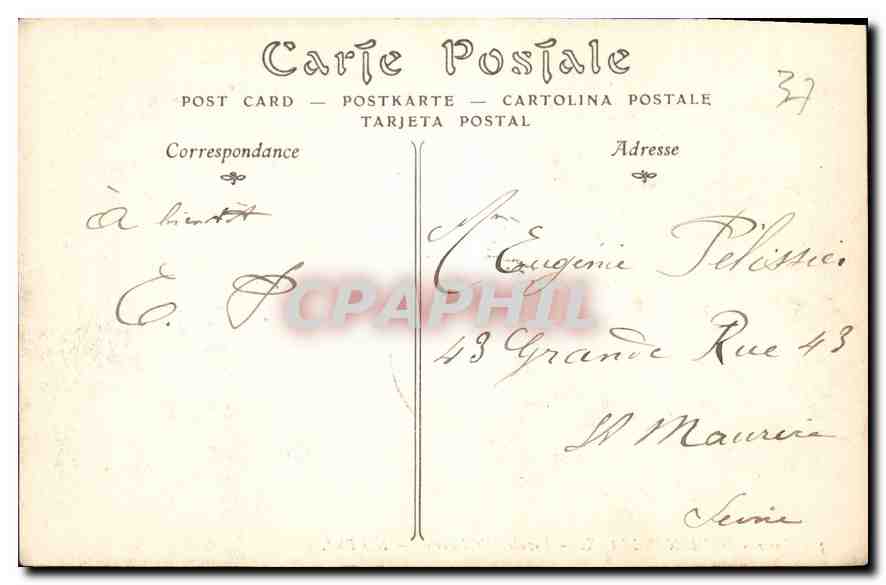 Carte Postale
POST CARD — POSTKARTE — CARTOLINA POSTALE
TARJETA POSTAL
37
Correspondance
Adresse
à bientôt
E. P.
Mme Eugénie Pélissier
43 Grande Rue 43
St Maurice
Seine
CPAPHIL